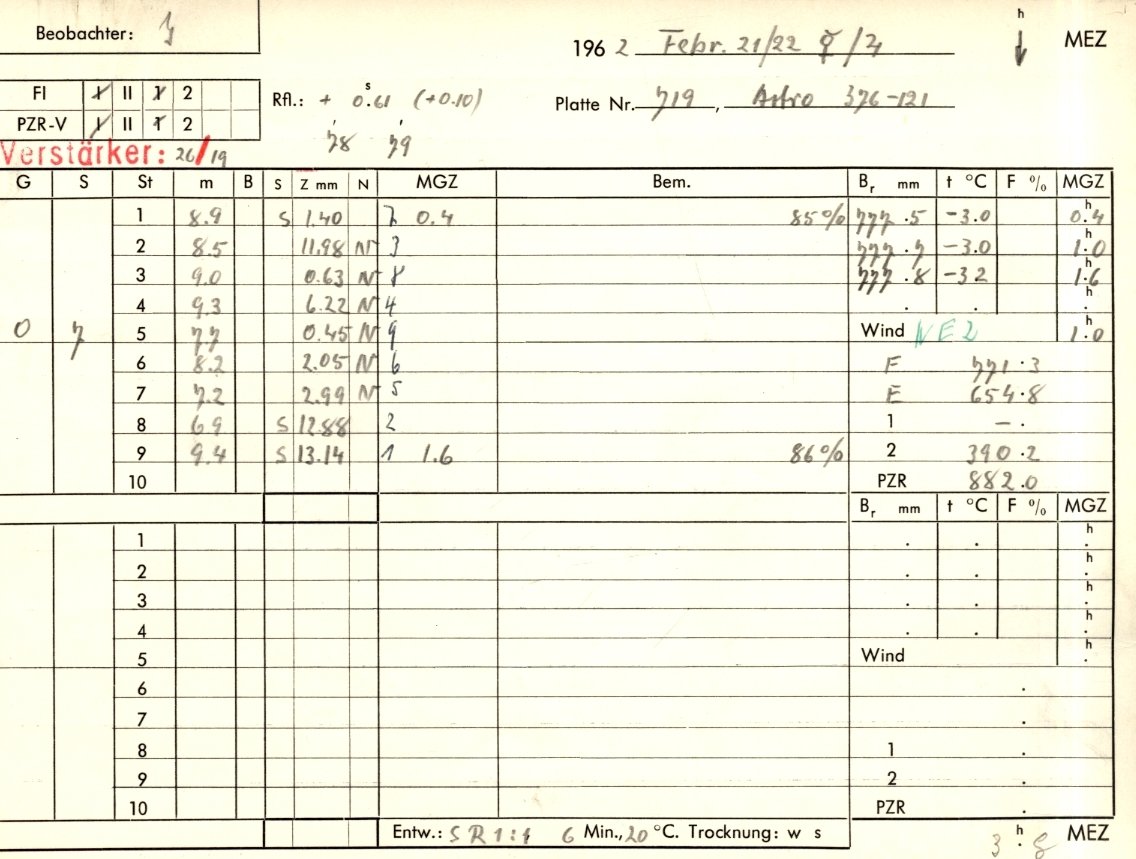 Beobachter:
196 2 Febr. 21/22 ☿/♃ h MEZ
FI I II 1 2
PZR-V I II 1 2
Rfl.: + 0.61 s (+0.10)
Platte Nr. 719, Astro 376-121
'78 '79
Verstärker: 26/19
G S St m B S Z mm N MGZ Bem. Br mm t °C F % MGZ
1 8.9 S 1.40 7 0.4 85% 777.5 -3.0 0.4 h
2 8.5 11.98 N 3 777.7 -3.0 1.0 h
3 9.0 0.63 N 8 777.8 -3.2 1.6 h
4 9.3 6.22 N 4 . . . h
0 7 5 7.7 0.45 N 9 Wind NE2 1.0 h
6 8.2 2.05 N 6 F 771.3
7 7.2 2.99 N 5 E 654.8
8 6.9 S 12.88 2 1 – .
9 9.4 S 13.14 1 1.6 86% 2 390.2
10 PZR 882.0
Br mm t °C F % MGZ
1 . . . h
2 . . . h
3 . . . h
4 . . . h
5 Wind . h
6 .
7 .
8 1 .
9 2 .
10 PZR .
Entw.: S R 1:1 6 Min., 20 °C. Trocknung: w s 3.8 h MEZ